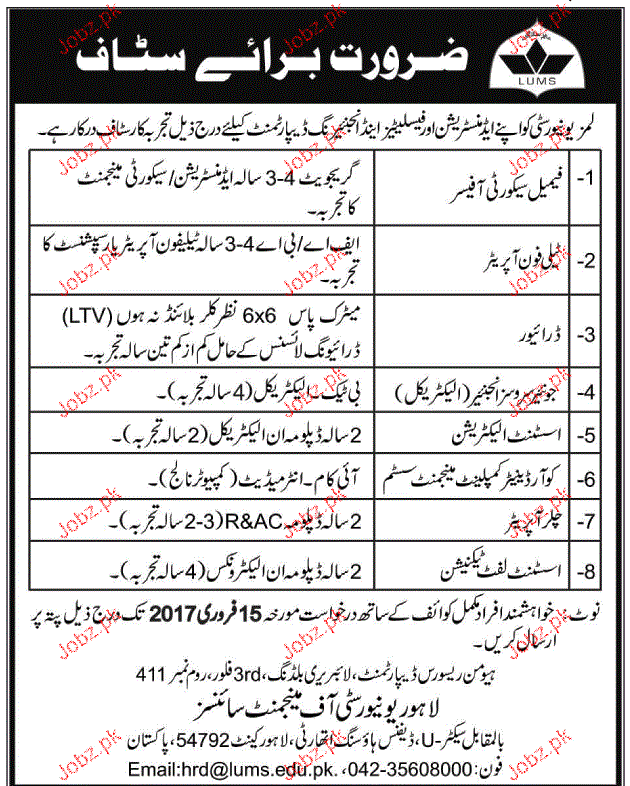 ضرورت برائے سٹاف
LUMS
لمز یونیورسٹی کو اپنے ایڈمنسٹریشن اور فیسلیٹیز اینڈ انجنیئرنگ ڈیپارٹمنٹ کیلئے درج ذیل تجربہ کار سٹاف درکار ہے۔
1- فیمیل سکیورٹی آفیسر گریجویٹ 4-3 سالہ ایڈمنسٹریشن/سکیورٹی مینجمنٹ
کا تجربہ۔
2- ٹیلی فون آپریٹر ایف اے/بی اے 4-3 سالہ ٹیلیفون آپریٹر یا رسپشنسٹ کا
تجربہ۔
3- ڈرائیور میٹرک پاس 6x6 نظر کلر بلائنڈ نہ ہوں (LTV)
ڈرائیونگ لائسنس کے حامل کم از کم تین سالہ تجربہ۔
4- جونیئر سروسز انجنیئر (الیکٹریکل) بی ٹیک۔الیکٹریکل (4 سالہ تجربہ)۔
5- اسسٹنٹ الیکٹریشن 2 سالہ ڈپلومہ ان الیکٹریکل (2 سالہ تجربہ)۔
6- کوآرڈینیٹر کمپلینٹ مینجمنٹ سسٹم آئی کام۔انٹرمیڈیٹ (کمپیوٹر نالج)۔
7- چلر آپریٹر 2 سالہ ڈپلومہ R&AC (2-3 سالہ تجربہ)۔
8- اسسٹنٹ لفٹ ٹیکنیشن 2 سالہ ڈپلومہ ان الیکٹرونکس (4 سالہ تجربہ)۔
نوٹ۔ خواہشمند افراد مکمل کوائف کے ساتھ درخواست مورخہ 15 فروری 2017 تک درج ذیل پتہ پر
ارسال کریں۔
ہیومن ریسورس ڈیپارٹمنٹ، لائبریری بلڈنگ، 3rd فلور، روم نمبر 411
لاہور یونیورسٹی آف مینجمنٹ سائنسز
بالمقابل سیکٹر-U، ڈیفنس ہاؤسنگ اتھارٹی، لاہور کینٹ 54792، پاکستان
فون: 042-35608000، Email:hrd@lums.edu.pk.
Jobz.pk